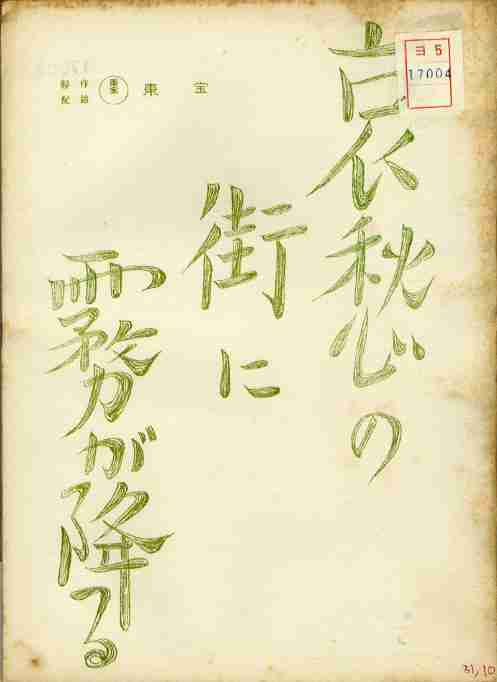 哀愁の
街に
霧が降る
製作
配給
東宝
東宝
ヨ5
17004
31,10